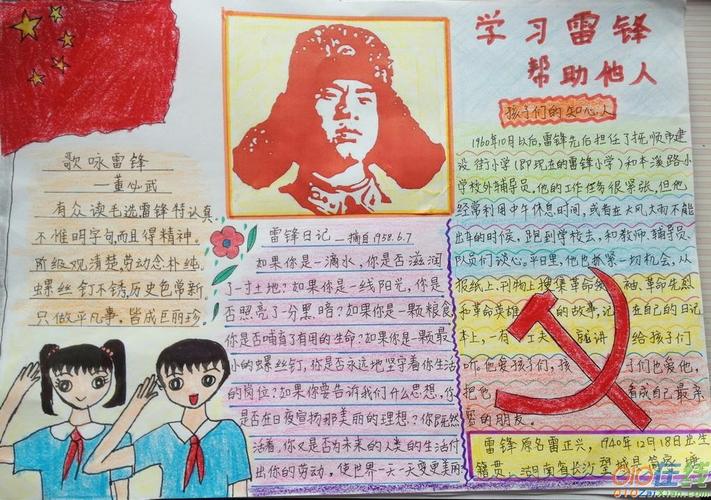 学习雷锋
帮助他人
歌咏雷锋
—董必武
有众读毛选雷锋特认真
不惟明字句,而且得精神。
阶级观清楚,劳动念朴纯。
螺丝钉不锈,历史色常新。
只做平凡事,皆成巨丽珍
雷锋日记—摘自1958.6.7
如果你是一滴水,你是否滋润
了一寸土地?如果你是一线阳光,你是
否照亮了一分黑暗?如果你是一颗粮食
你是否哺育了有用的生命?如果你是一颗最
小的螺丝钉,你是否永远地坚守着你生活
的岗位?如果你要告诉我们什么思想,你
是否在日夜宣扬那美丽的理想?你既然
活着,你又是否为未来的人类的生活付
出你的劳动,使世界一天一天变更美丽
孩子们的知心人
1960年10月以后,雷锋先后担任了抚顺市建
设街小学(即现在的雷锋小学)和本溪路小
学校外辅导员,他的工作任务很紧张,但他
经常利用中午休息时间,或者在大风大雨不能
出车的时候,跑到学校去,和教师、辅导员、
队员们谈心。平日里,他也抓紧一切机会,从
报纸上,刊物上搜集革命领袖、革命先烈
和革命英雄的故事,记在自己的日记
本上,一有工夫就讲给孩子们
听,他爱孩子们,孩子们也爱他,
把他看成自己最亲
密的朋友。
雷锋原名雷正兴,1940年12月18日出生
籍贯:湖南省长沙望城县简家塘
010在线
010zaixian.com